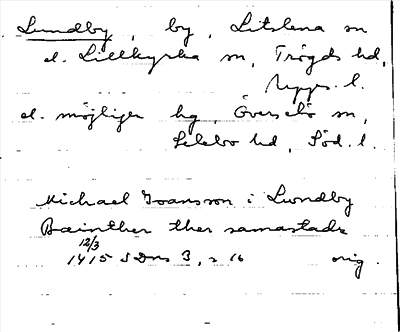 Lundby, by, Litslena sn
el. Lillkyrka sn, Trögds hd,
Upps. l.
el. möjligen hg, Överselö sn,
Selebo hd, Söd. l.
Michael Joansson i Lwndby
Bainther ther samastadz
12/3
1415 SDns 3, s 16 orig.